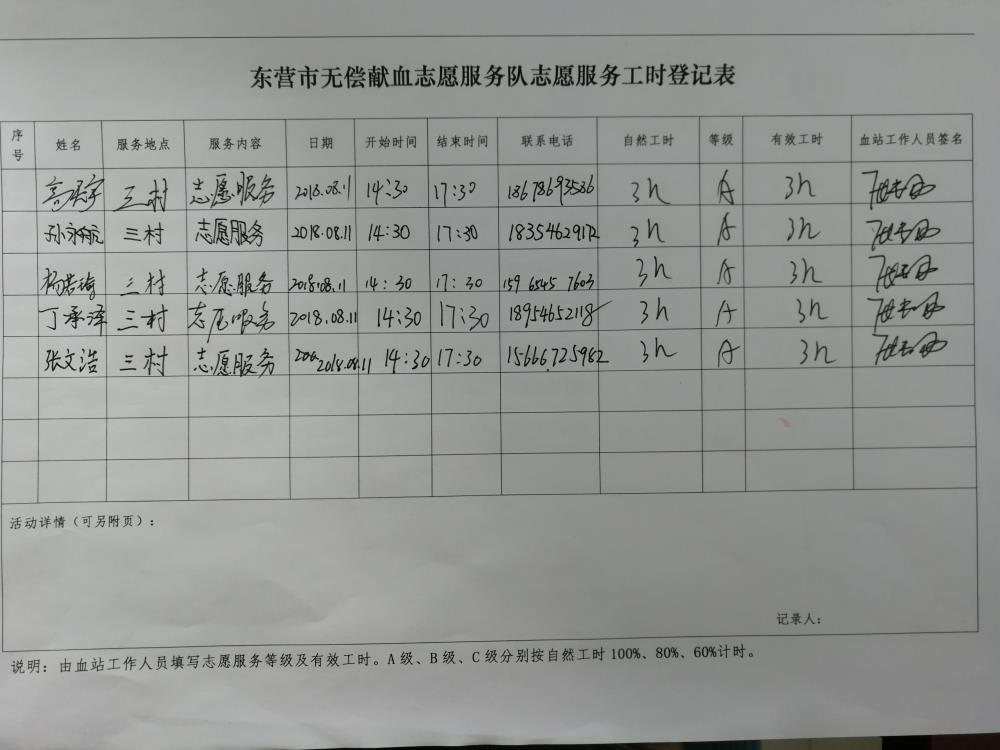 东营市无偿献血志愿服务队志愿服务工时登记表
序号 姓名 服务地点 服务内容 日期 开始时间 结束时间 联系电话 自然工时 等级 有效工时 血站工作人员签名
三村 志愿服务 2018.08.11 14:30 17:30 18678693586 3h A 3h
三村 志愿服务 2018.08.11 14:30 17:30 3h A 3h
杨若瑜 三村 志愿服务 2018.08.11 14:30 17:30 159 6545 7603 3h A 3h
丁承泽 三村 志愿服务 2018.08.11 14:30 17:30 18954652118 3h A 3h
张文浩 三村 志愿服务 2018.08.11 14:30 17:30 15666725982 3h A 3h
活动详情（可另附页）：
记录人：
说明：由血站工作人员填写志愿服务等级及有效工时。A级、B级、C级分别按自然工时100%、80%、60%计时。